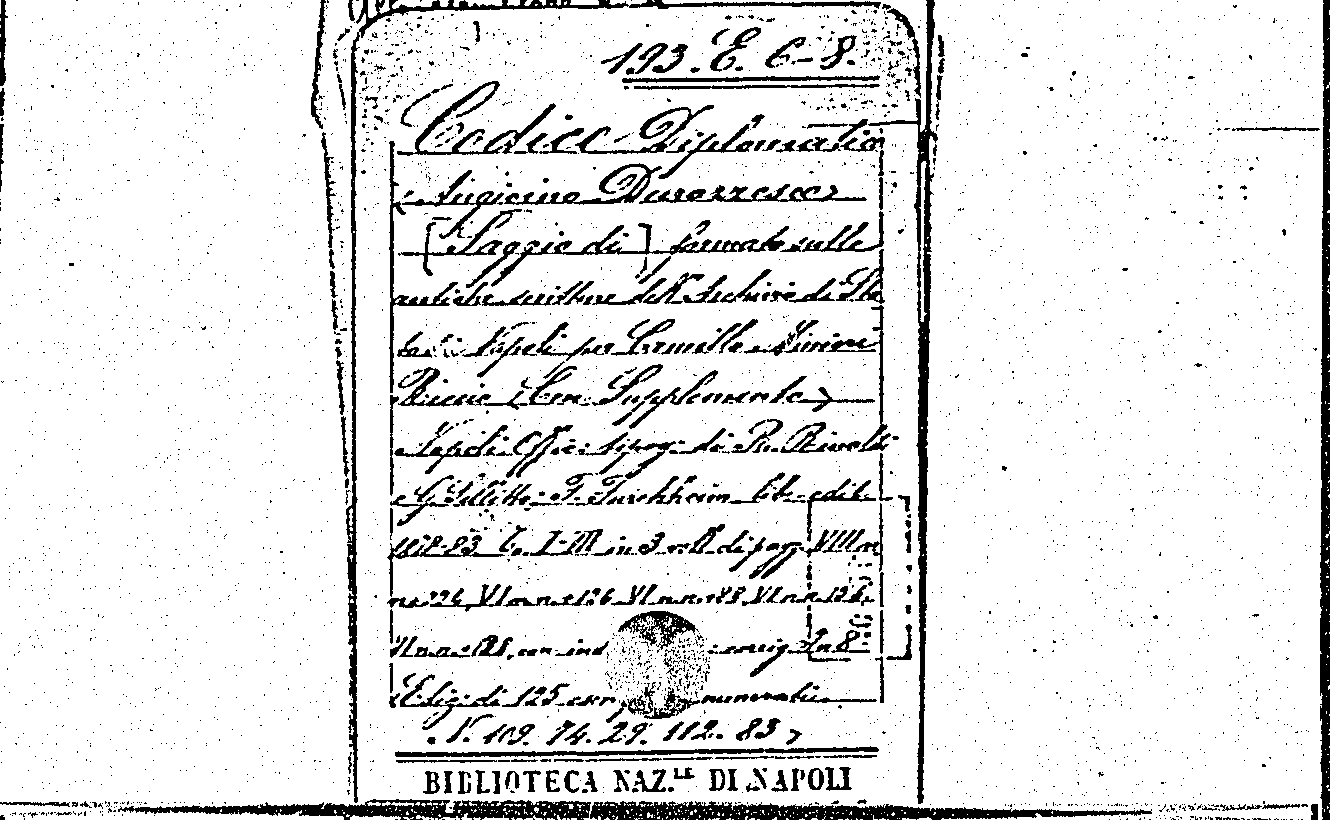 193. E. 6-8.
Codice Diplomatico
Angioino Durazzesco
[Saggio di] formato sulle
antiche scritture dell' Archivio di Sta
to di Napoli per Camillo Minieri
Riccio (Con Supplemento)
Napoli Offic: tipog: di R. Rinaldi
e G. Sellitto: F. Furchheim lib. edit.
-83 T. I-III in 3 voll di pagg. VIII n
VI n n + 126 VI n n + 88 VI n n
VI n n con ind corrig. In 8°
Ediz. di 125 numerati.
N. 109. 74. 29. 112. 83
BIBLIOTECA NAZ.LE DI NAPOLI